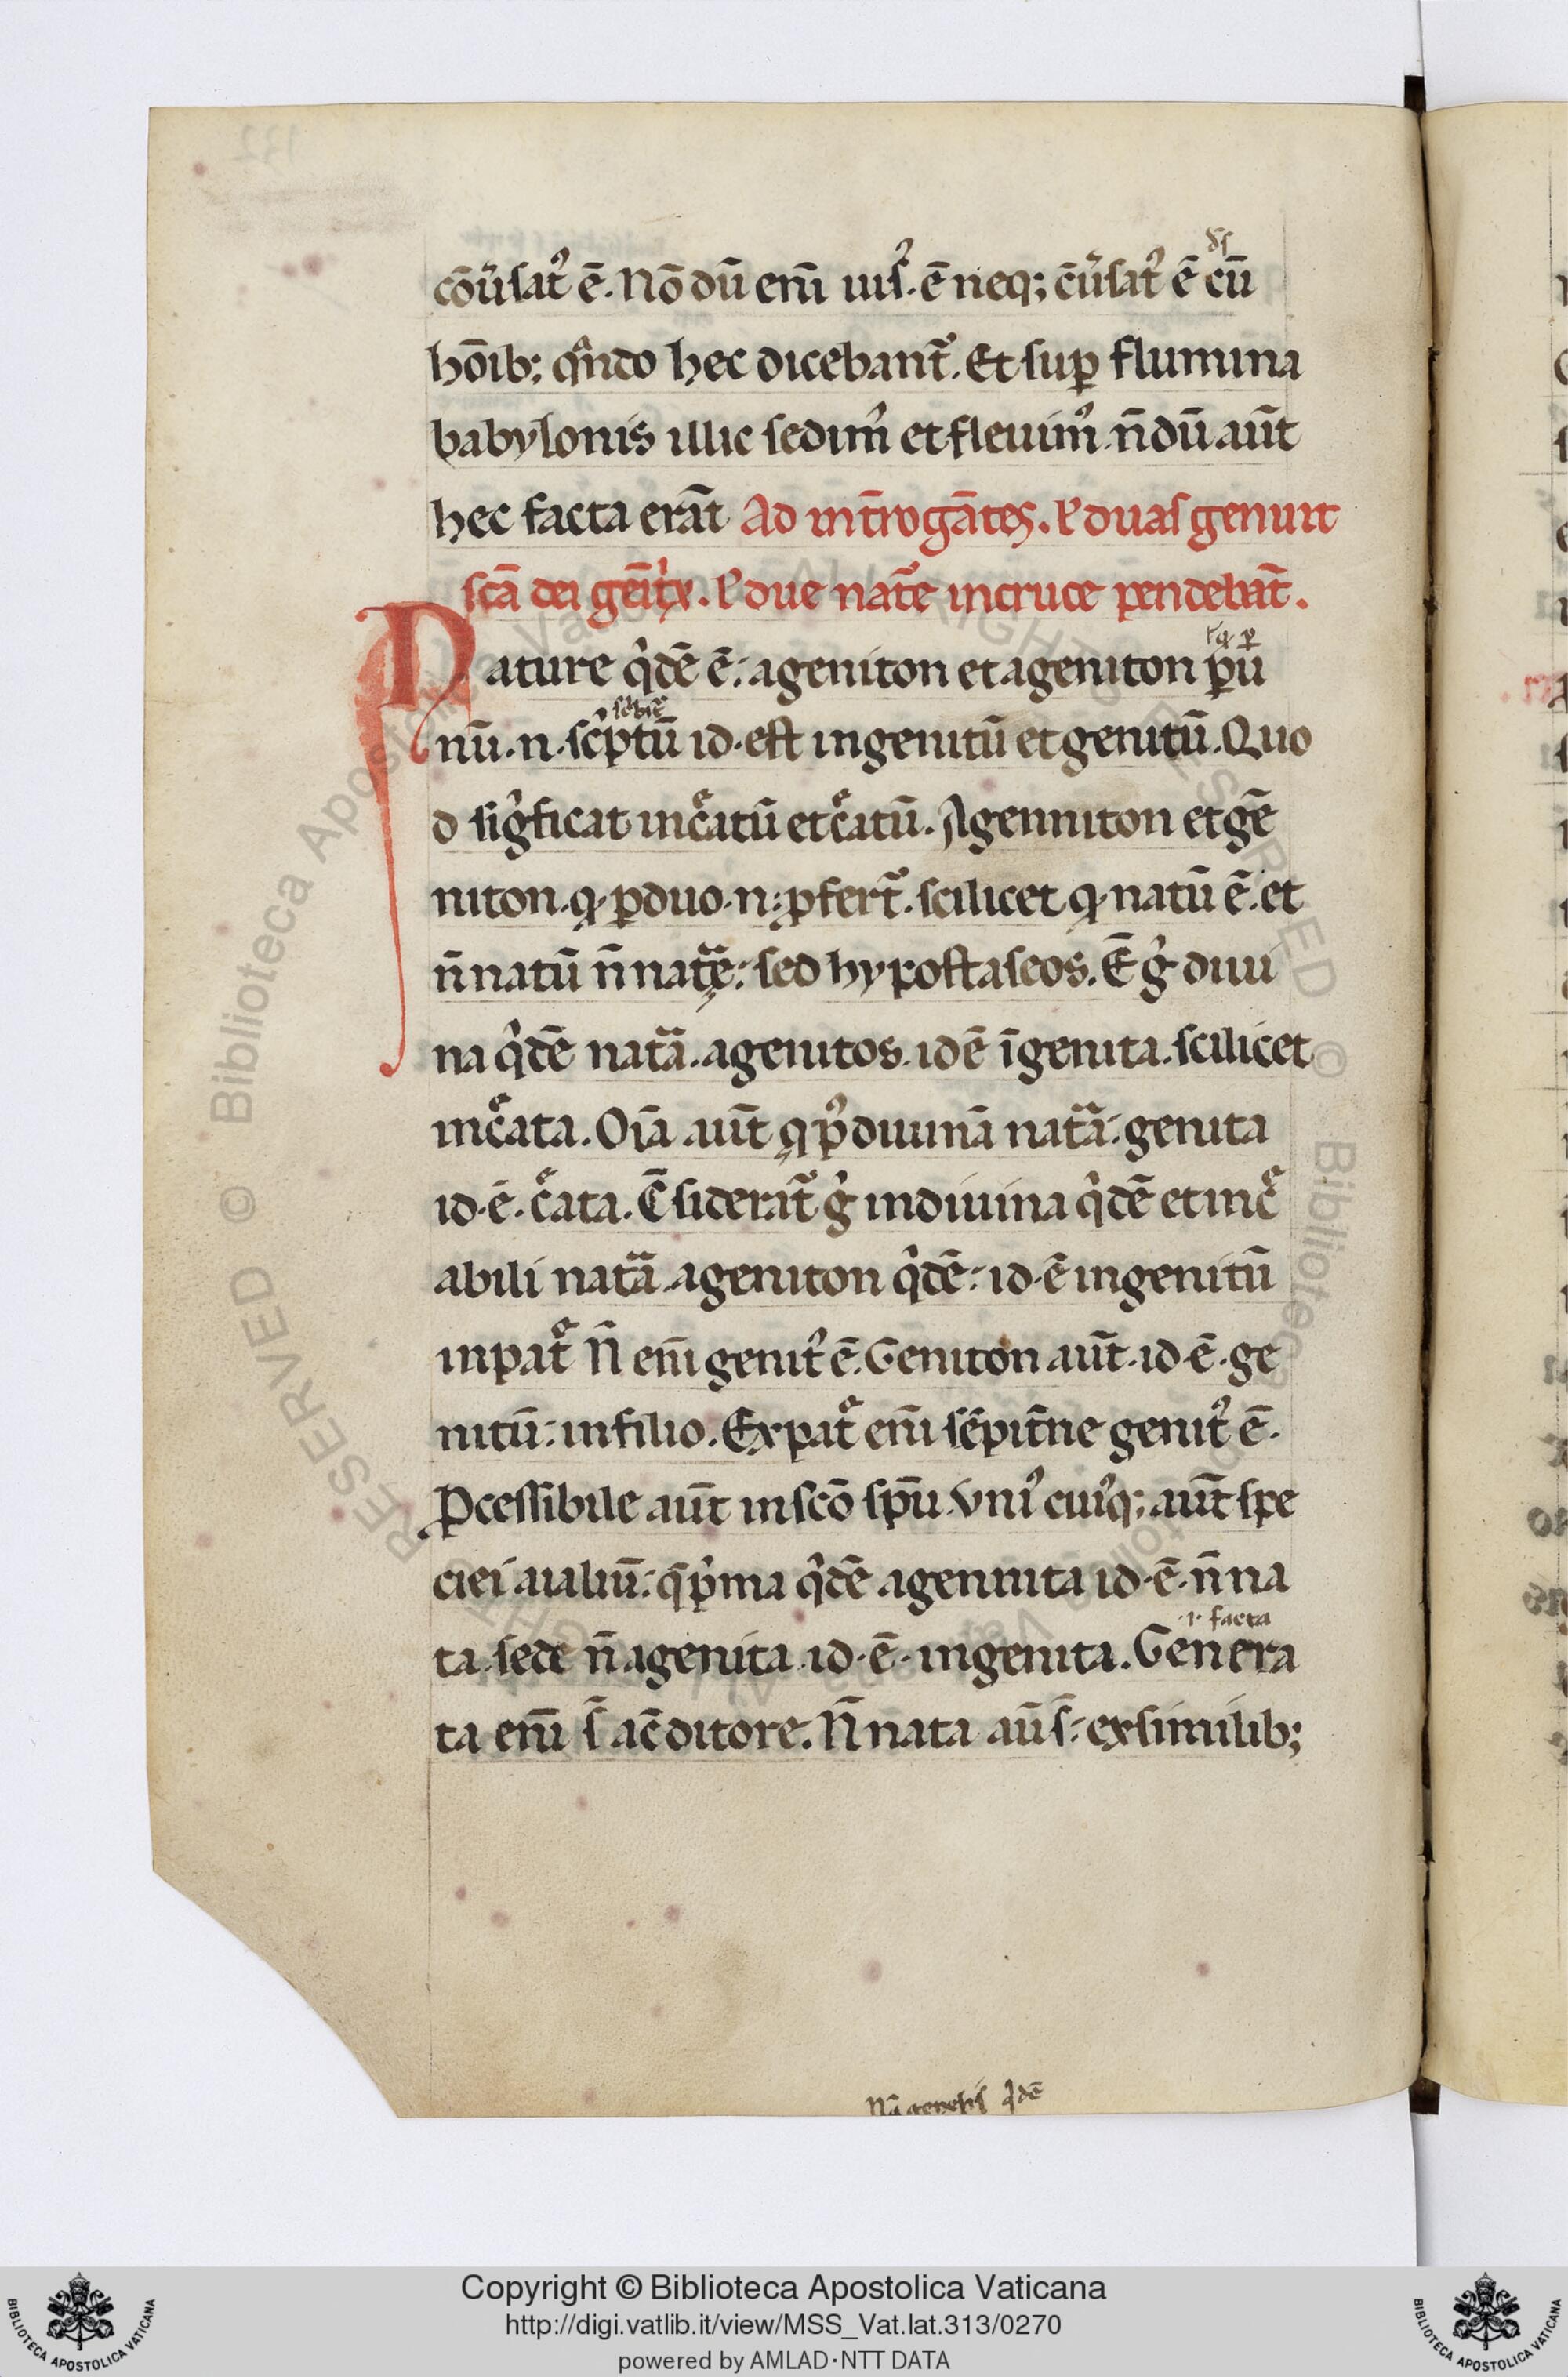 ds
cōūsat᷒ ē. Nō dū enī uis᷒. ē neq; cūsat᷒ ē cū
hōīb; qn̄do hec dicebant᷑. Et suꝑ flumina
babylonis illic sedim᷒ et fleuim᷒. n̄dū aūt
hec facta erāt. Ad int̄rogātes. ł duas genuit
scā dei genitx. ł due nat̄e in cruce pendebāt.
Nature q̇dē ē: ageniton et ageniton ꝑ ū
nū .n. scͥptū id est ingenitū et genitū. Quo
d sigͥficat incͤatū et cͤatū. Agenniton et gē
niton. ꝙ ꝑ duo .n. ꝓfert᷑. scilicet ꝙ natū ē. et
n̄ natū n̄ natᷓę: sed hypostaseos. Ē gͥ diui
na qͥdē natᷓa. agenitos. id ē īgenita. scilicet
incͤata. Oīa aūt q̨ p᷒ diuinā natᷓa: genita
id ē. cͤata. C̄siderat᷑ gͥ in diuina qͥdē et incͤ
abili natᷓa. ageniton qͥdē: id ē ingenitū
in patͤ. N̄ enī genit᷒ ē. Geniton aūt. id ē. ge
nitū: in filio. Ex patͤ enī sēpit̄ne genit᷒ ē.
Ꝓcessibile aūt in scō spū. Vni᷒ cui᷒q; aūt spe
ciei aialiū: q̄ pͥma qͥdē agennita id ē. n̄ na
.i. facta
ta. sede n̄ agenita id ē. ingenita. Genera
ta enī s̄ a c̄ditore. N̄ nata aū s̄: ex similib;
qͥdē
Copyright © Biblioteca Apostolica Vaticana
http://digi.vatlib.it/view/MSS_Vat.lat.313/0270
powered by AMLAD·NTT DATA
BIBLIOTECA APOSTOLICA VATICANA
BIBLIOTECA APOSTOLICA VATICANA